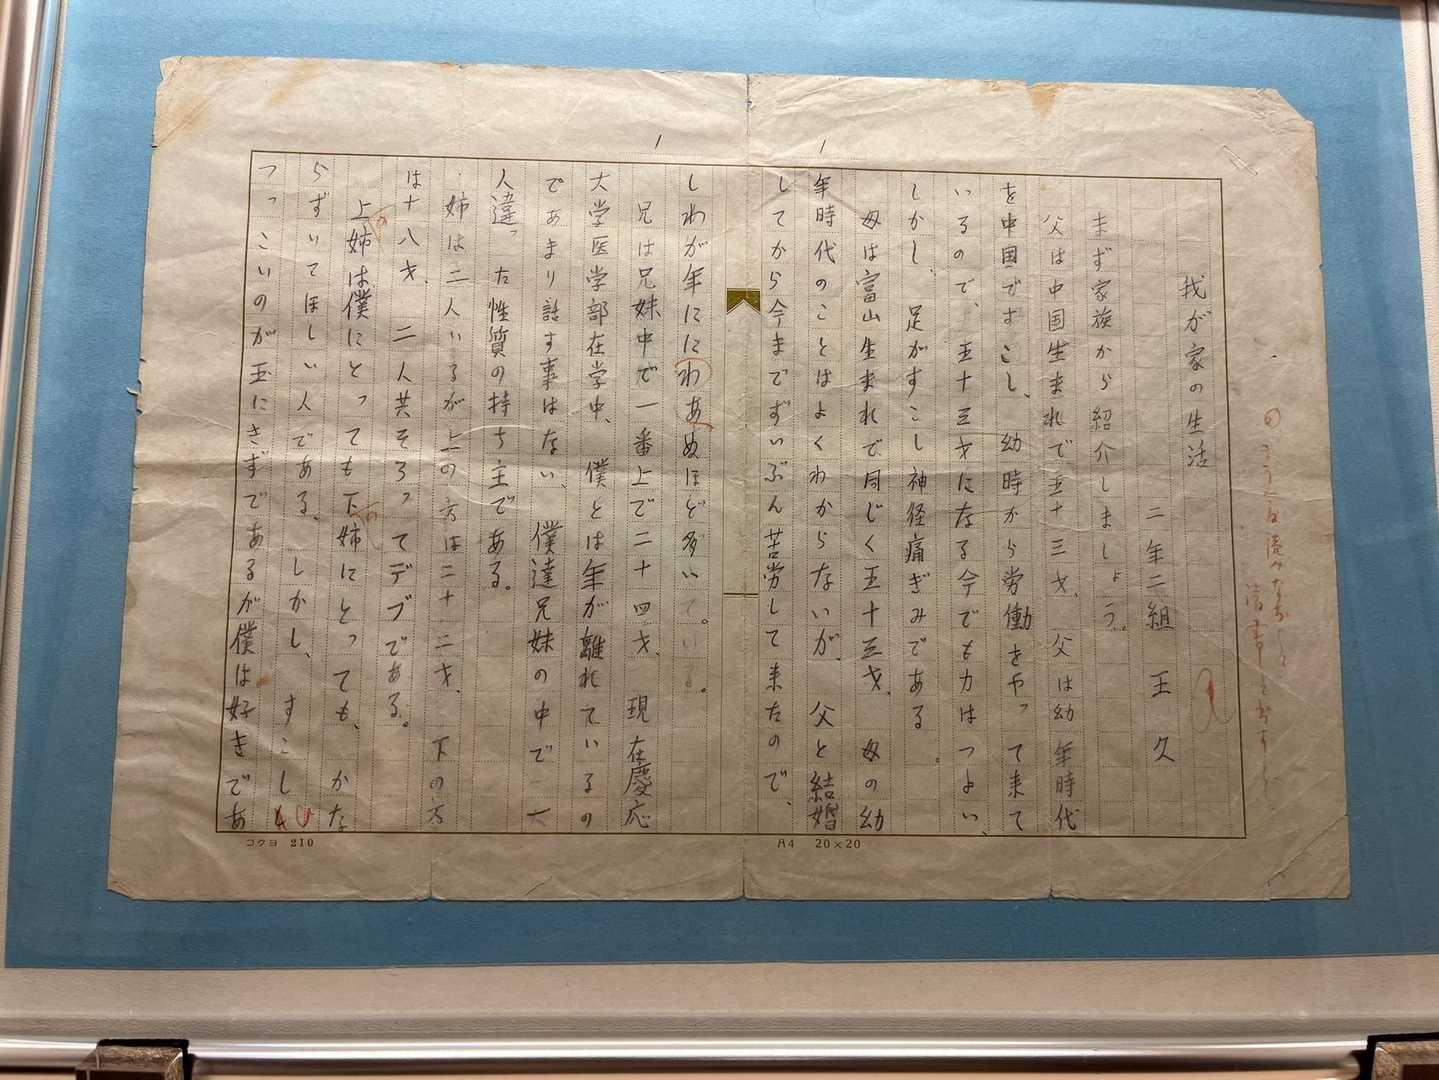 我が家の生活
二年二組 王 久
まず家族から紹介しましょう。
父は中国生まれで五十三才、父は幼年時代
を中国ですごし、幼時から労働をやって来て
いるので、五十三才になる今でも力はつよい、
しかし、足がすこし神径痛ぎみである。
母は富山生まれで同じく五十三才、母の幼
年時代のことはよくわからないが、父と結婚
してから今まですずいぶん苦労して来たので、
しわが年ににわあぬほど多い。
兄は兄妹中で一番上で二十四才、現在慶応
大学医学部在学中、僕とは年が離れているの
であまり話す事はない、僕達兄妹の中で一
人違った性質の持ち主である。
姉は二人いるが上の方は二十二才、下の方
は十八才、二人共そろってデブである。
上姉は僕にとっても下姉にとっても、かな
の
の
らずいてほしい人である、しかし、すこし
つっこいのが玉にきずであるが僕は好きであ
コクヨ 210
A4 20×20